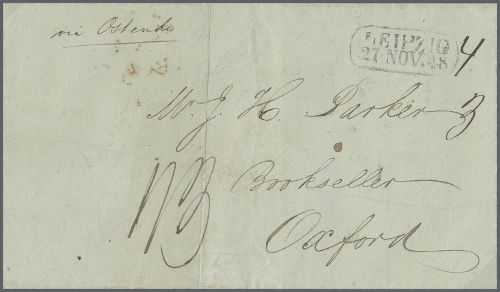 via Ostende
LEIPZIG
27 NOV. 48
4
Mr. J. H. Parker
3
Bookseller
Oxford